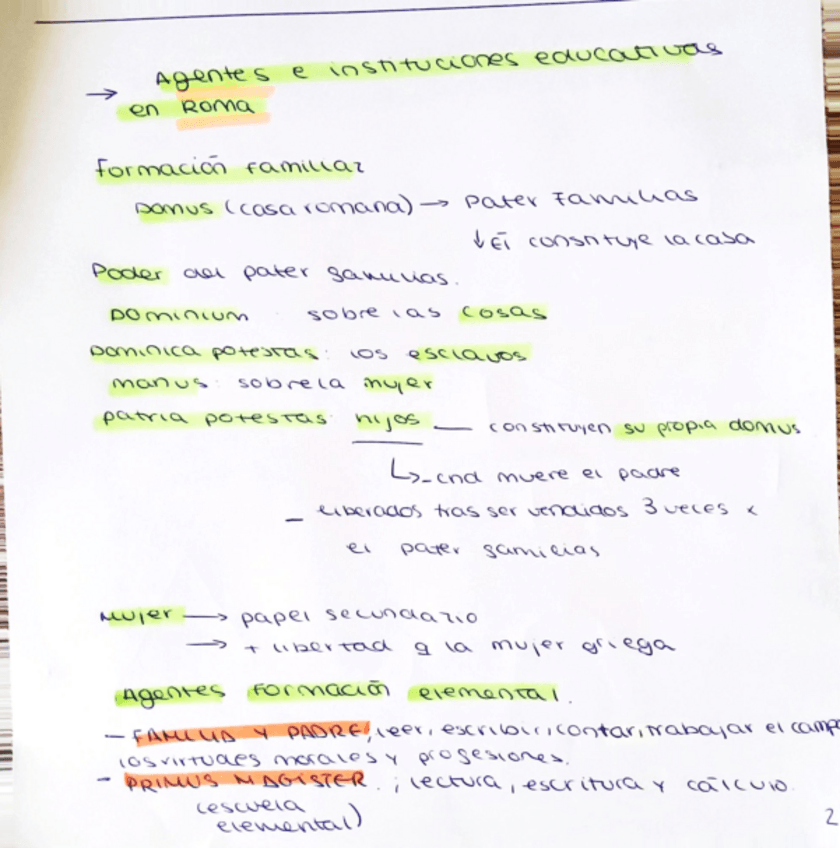 → Agentes e instituciones educativas
en ROMA
Formación familiar
Domus (casa romana) → Pater Familias
↓ Él constituye la casa
Poder del pater familias.
Dominium sobre las cosas
Dominica potestas: los esclavos
manus: sobre la mujer
patria potestas hijos — constituyen su propia domus
↳ - cnd muere el padre
- liberados tras ser vendidos 3 veces x
el pater familias
Mujer → papel secundario
→ + libertad q la mujer griega
Agentes formación elemental.
- FAMILIA Y PADRE, leer, escribir, contar, trabajar el campo
los virtudes morales y profesiones.
- PRIMUS MAGISTER. ; lectura, escritura y cálculo.
(escuela
elemental)
2